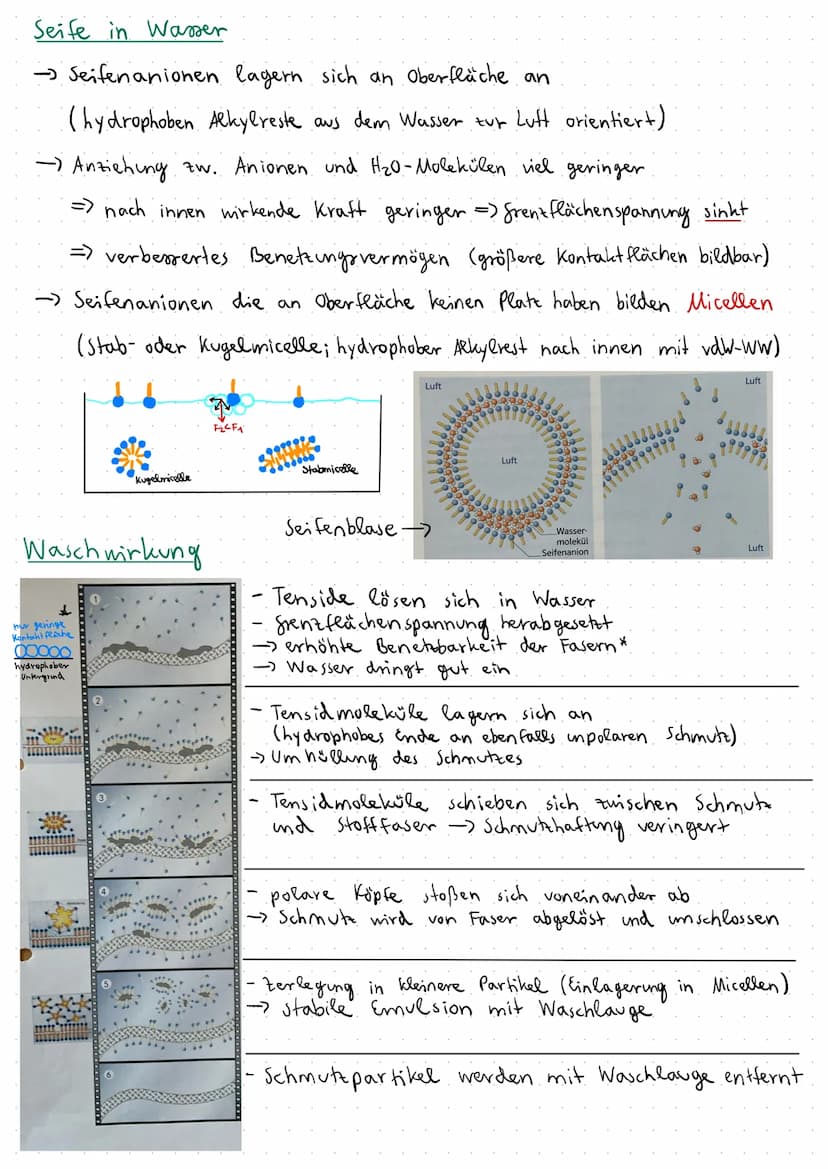 Seife in Wasser
→ Seifenanionen lagern sich an Oberfläche an
(hydrophoben Alkylreste aus dem Wasser zur Luft orientiert)
→ Anziehung zw. Anionen und H₂O-Molekülen viel geringer
=> nach innen wirkende Kraft geringer => Grenzflächenspannung sinkt
=> verbessertes Benetzungsvermögen (größere Kontaktflächen bildbar)
→ Seifenanionen die an Oberfläche keinen Platz haben bilden Micellen
(Stab- oder Kugelmicelle; hydrophober Alkylrest nach innen mit vdW-WW)
F₂<F₁
Kugelmicelle
Stabmicelle
Luft
Luft
Wasser-
molekül
Seifenanion
Luft
Luft
Seifenblase →
Waschwirkung
*
nur geringe
Kontaktfläche
hydrophober
Untergrund
1
- Tenside lösen sich in Wasser
- Grenzflächenspannung herabgesetzt
→ erhöhte Benetzbarkeit der Fasern*
→ Wasser dringt gut ein
2
- Tensidmoleküle lagern sich an
(hydrophobes Ende an ebenfalls unpolaren Schmutz)
→ Umhüllung des Schmutzes
3
- Tensidmoleküle schieben sich zwischen Schmutz
und Stofffaser → Schmutzhaftung veringert
4
- polare Köpfe stoßen sich voneinander ab
→ Schmutz wird von Faser abgelöst und umschlossen
5
- Zerlegung in kleinere Partikel (Einlagerung in Micellen)
→ stabile Emulsion mit Waschlauge
6
- Schmutzpartikel werden mit Waschlauge entfernt